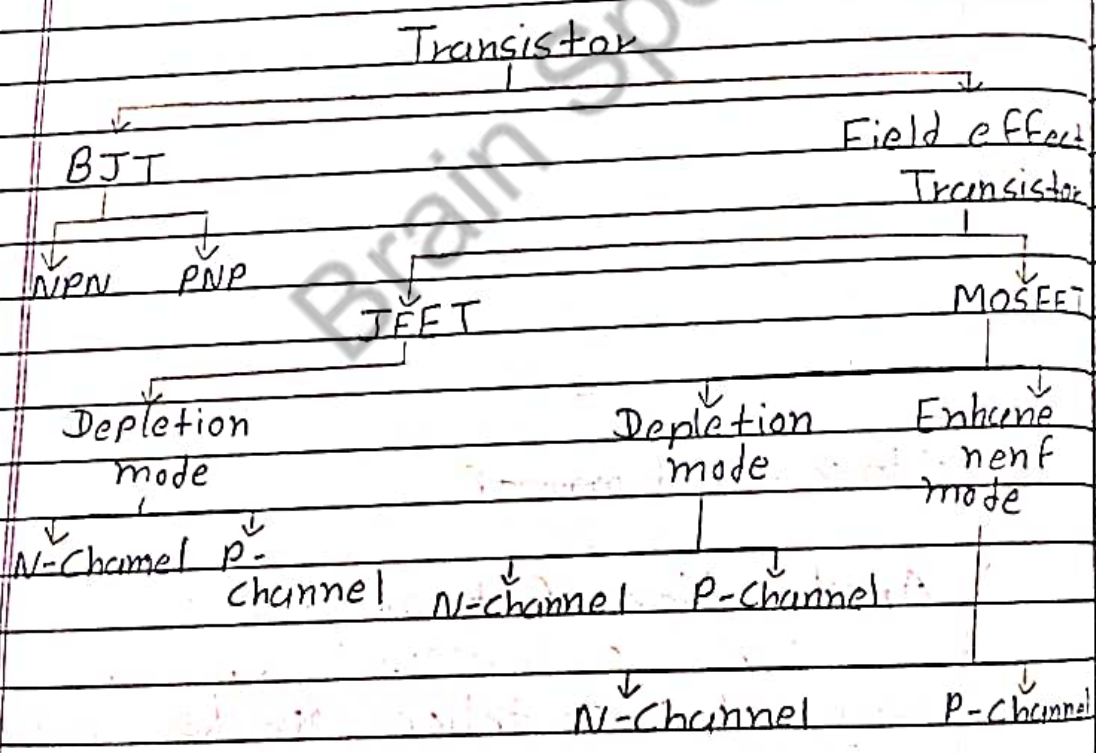 Transistor
BJT
Field effect
Transistor
NPN PNP
JFET
MOSFET
Depletion
mode
Depletion
mode
Enhane
nent
mode
N-Channel P-
Channel
N-Channel P-Channel
N-Channel P-Channel